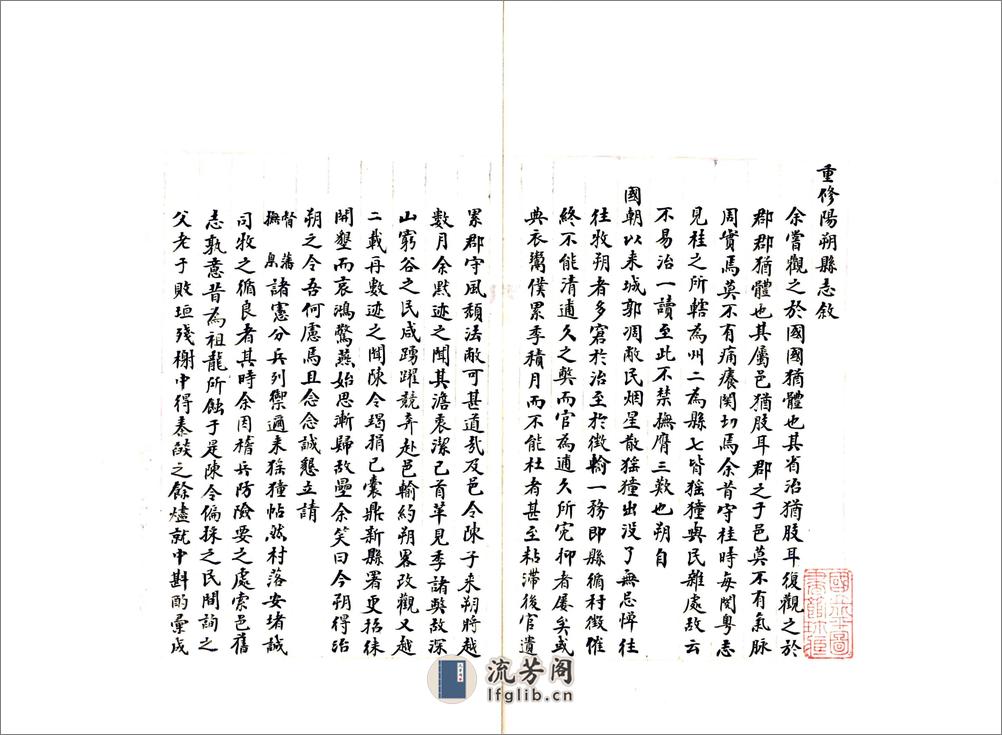 重修陽朔縣志敘
余嘗觀之於國國猶體也其省治猶股耳復觀之於
郡郡猶體也其屬邑猶肢耳郡之于邑莫不有氣脉
周實焉莫不有痛癢関切焉余昔守桂時每閱粵志
見桂之所轄為州二為縣七皆猺獞與民雜處故云
不易治一讀至此不禁撫膺三歎也朔自
國朝以來城郭凋敝民烟星散猺獞出沒了無忌憚往
往牧朔者多窘於治至於徵輸一務即縣循村徵催
終不能清逋久之獘而官為逋久所宪抑者屡矣或
典衣鬻僕累季積月而不能杜者甚至粘滞後官遺
累郡守風頹法敝可甚道㢤及邑令陳子来朔將越
數月余默迹之聞其澹衷潔己首革見季諸獘故深
山窮谷之民咸踴躍競奔赴邑輸約朔畧改觀又越
二載再數迹之聞陳令竭捐已囊鼎新縣署更招徠
開墾而哀鴻驚燕始思漸歸故壘余笑曰今朔得治
朔之令吾何慮焉且念念誠懇立請
督撫藩臬諸憲分兵列禦邇来猺獞帖然村落安堵誠
司牧之循良者其時余因稽兵防險要之處索邑舊
志敦意昔為祖龍所蝕于是陳令徧採之民間詢之
父老于敗垣殘榭中得秦燄之餘燼就中斟酌彙成
國立北平圖書館珍藏
流芳阁
lfglib.cn